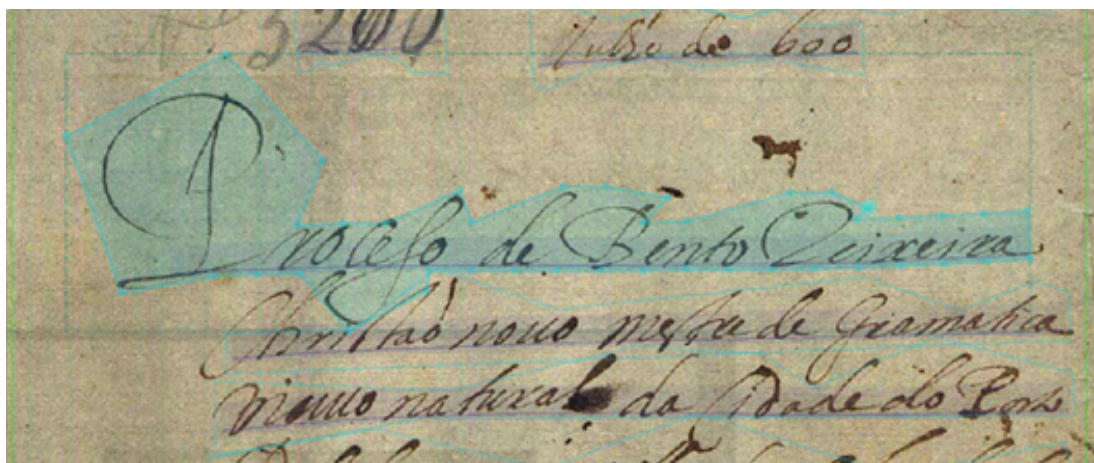 Nº 5206
Julho de 600
Processo de Bento Teixeira
Christão nouo mestre de Gramatica
natural da Cidade do Porto